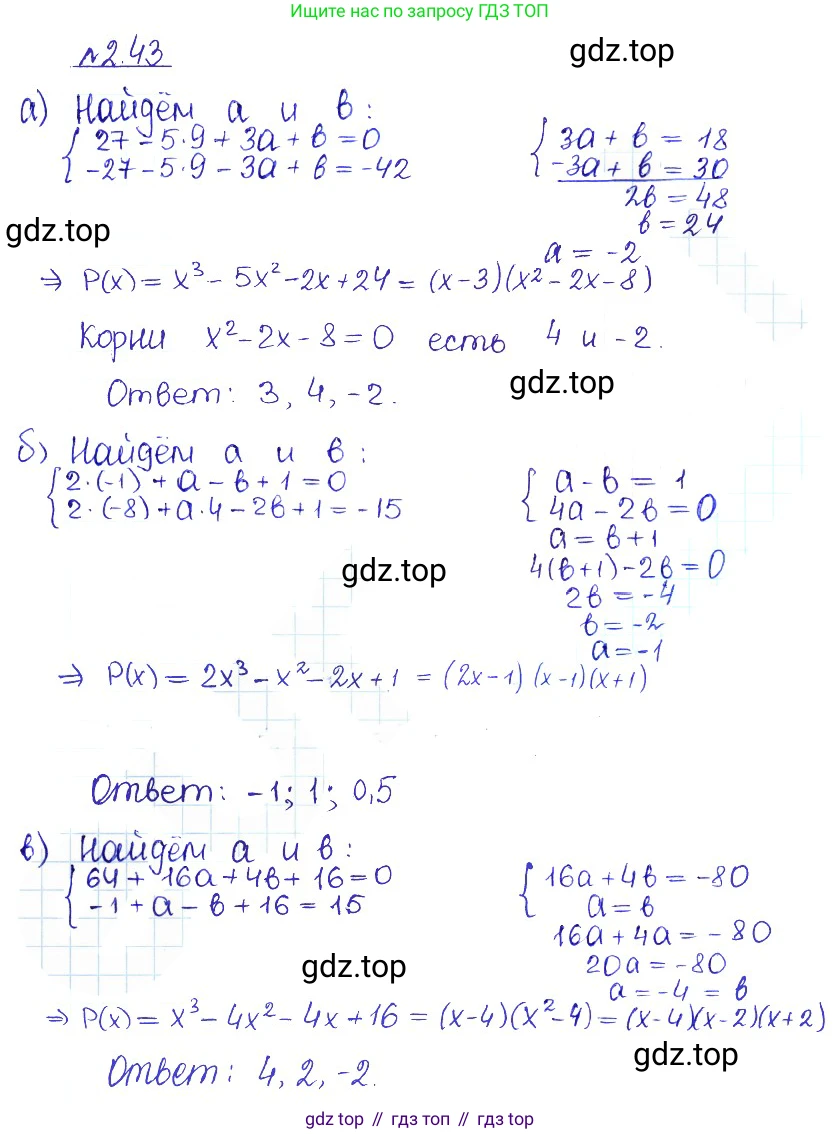 Ищите нас по запросу ГДЗ ТОП
№2.43
gdz.top
а) Найдём a и b:
{ 27 - 5·9 + 3a + b = 0
{ -27 - 5·9 - 3a + b = -42
{ 3a + b = 18
-3a + b = 30
2b = 48
b = 24
a = -2
gdz.top
⇒ P(x) = x³ - 5x² - 2x + 24 = (x-3)(x² - 2x - 8)
Корни x² - 2x - 8 = 0 есть 4 и -2.
Ответ: 3, 4, -2.
gdz.top
б) Найдём a и b:
{ 2·(-1) + a - b + 1 = 0
{ 2·(-8) + a·4 - 2b + 1 = -15
{ a - b = 1
4a - 2b = 0
a = b + 1
4(b+1) - 2b = 0
2b = -4
b = -2
a = -1
gdz.top
⇒ P(x) = 2x³ - x² - 2x + 1 = (2x-1)(x-1)(x+1)
Ответ: -1; 1; 0,5
в) Найдём a и b:
{ 64 + 16a + 4b + 16 = 0
{ -1 + a - b + 16 = 15
{ 16a + 4b = -80
a = b
16a + 4a = -80
20a = -80
a = -4 = b
gdz.top
⇒ P(x) = x³ - 4x² - 4x + 16 = (x-4)(x²-4) = (x-4)(x-2)(x+2)
Ответ: 4, 2, -2.
gdz.top
gdz top // гдз топ // gdz.top